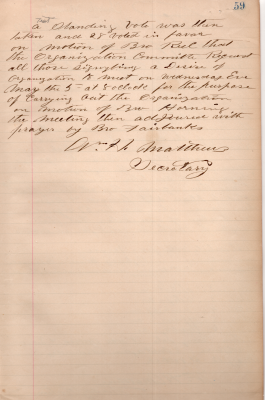 59
A Standing Vote was then
taken and 28 Voted in favor
on Motion of Bro Keel that
the Organization Committe Request
all those Signifying a Desire of
Organization to Meet on Wednesday Eve
May the 5th at 8 oclock for the purpose
of Carrying Out the Organization
on Motion of Bro Horning
the Meeting then adjourned with
prayer by Bro Fairbanks
Wm Matthews
Secretary